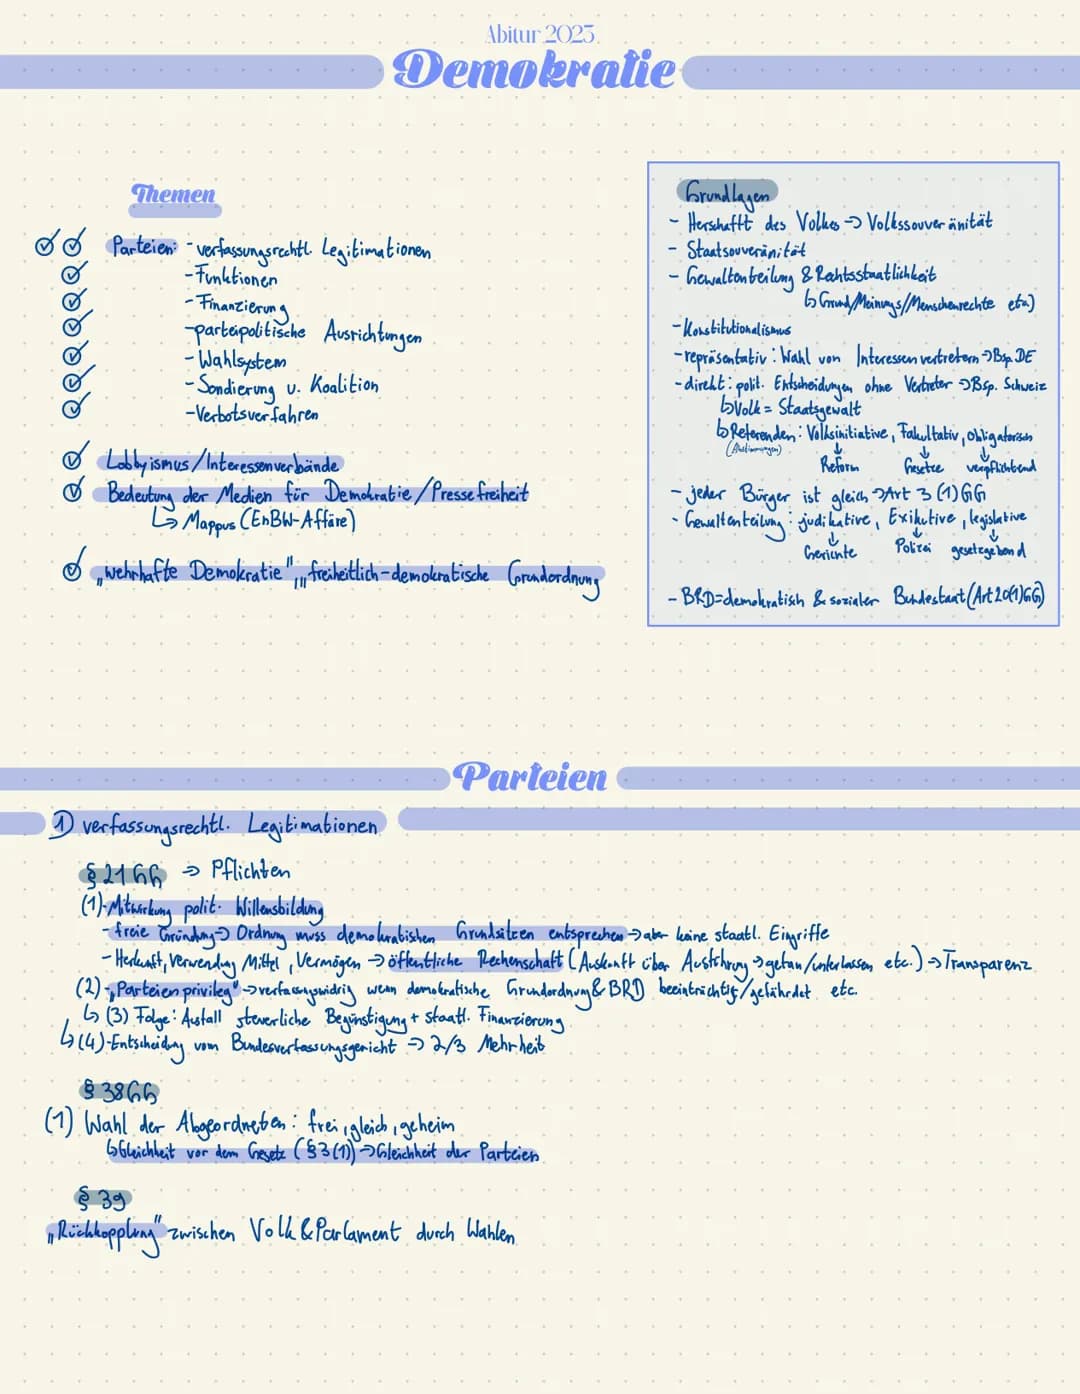 Abitur 2023
Demokratie
Themen
Parteien: - verfassungsrechtl. Legitimationen
- Funktionen
- Finanzierung
- parteipolitische Ausrichtungen
- Wahlsystem
- Sondierung u. Koalition
- Verbotsverfahren
Lobbyismus/Interessenverbände
Bedeutung der Medien für Demokratie/Pressefreiheit
↳ Mappus (EnBW-Affäre)
„wehrhafte Demokratie", „freiheitlich-demokratische Grundordnung
Grundlagen
- Herschafft des Volkes → Volkssouveränität
- Staatsouveränität
- Gewaltenteilung & Rechtsstaatlichkeit
↳ Grund/Meinungs/Menschenrechte etc.)
- Konstitutionalismus
- repräsentativ: Wahl von Interessenvertretern → Bsp. DE
- direkt: polit. Entscheidungen ohne Vertreter → Bsp. Schweiz
↳ Volk = Staatsgewalt
↳ Referenden: Volksinitiative, Fakultativ, Obligatorisch
(Abstimmungen) ↓ Reform ↓ Gesetze ↓ verpflichtend
- jeder Bürger ist gleich → Art 3 (1) GG
- Gewaltenteilung: judikative, Exikutive, legislative
↓ Gerichte ↓ Polizei ↓ gesetzgebend
- BRD = demokratisch & sozialer Bundestaat (Art 20(1) GG)
Parteien
1) verfassungsrechtl. Legitimationen
§ 21 GG → Pflichten
(1) - Mitwirkung polit. Willensbildung
- freie Gründung → Ordnung muss demokratischen Grundsätzen entsprechen → aber keine staatl. Eingriffe
- Herkunft, Verwendung Mittel, Vermögen → öffentliche Rechenschaft (Auskunft über Ausführung → getan/unterlassen etc.) → Transparenz
(2) - „Parteienprivileg" → verfassungswidrig wenn demokratische Grundordnung & BRD beeinträchtigt/gefährdet etc.
↳ (3) Folge: Ausfall steuerliche Begünstigung + staatl. Finanzierung
↳ (4) - Entscheidung vom Bundesverfassungsgericht → 2/3 Mehrheit
§ 38 GG
(1) Wahl der Abgeordneten: frei, gleich, geheim
↳ Gleichheit vor dem Gesetz (§3(1)) → Gleichheit der Parteien
§ 39
„Rückkopplung" zwischen Volk & Parlament durch Wahlen